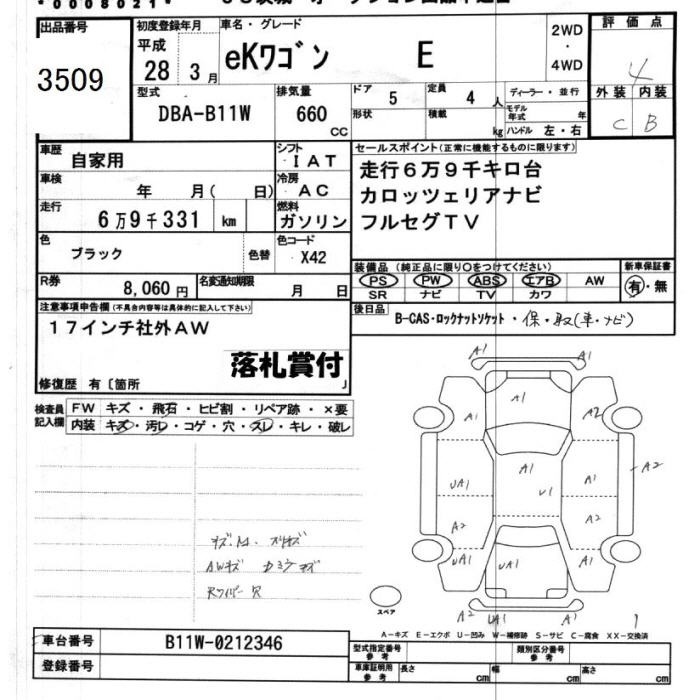 *0008021*
出品番号
3509
初度登録年月
平成
28 3 月
車名・グレード
eKワゴン E
2WD
・
4WD
評価点
4
外装 内装
C B
型式
DBA-B11W
排気量
660
cc
ドア
5
定員
4 人
形状
積載
kg
ディーラー・並行
モデル年式
年
ハンドル 左・右
車歴
自家用
シフト
IAT
車検
年 月( 日)
冷房
AC
走行
6万9千331 km
燃料
ガソリン
色
ブラック
色替
色コード
X42
R券
8,060円
名変通知期限
月 日
セールスポイント(正常に機能するものに限ります)
走行6万9千キロ台
カロッツェリアナビ
フルセグTV
装備品(純正品に限り○をつけてください)
PS PW ABS エアB AW
SR ナビ TV カワ
新車保証書
有・無
後日品
B-CAS・ロックナットソケット・保・取(車・ナビ)
注意事項申告欄(不具合内容等は具体的に記入して下さい)
17インチ社外AW
落札賞付
修復歴 有〔箇所 〕
検査員
記入欄
FW キズ・飛石・ヒビ割・リペア跡・×要
内装 キズ・汚レ・コゲ・穴・スレ・キレ・破レ
AWキズ
Rワイパー穴
A1
A1
A1
A1
A2
A1
A1
A2
UA1
U1
A2
A2
UA1
UA1
A1
スペア
A2 UA1 A1
A-キズ E-エクボ U-凹み W-補修跡 S-サビ C-腐食 XX-交換済
車台番号
B11W-0212346
登録番号
型式指定番号
参考
類別区分番号
参考
車庫証明用
参考
長さ cm
幅 cm
高さ cm